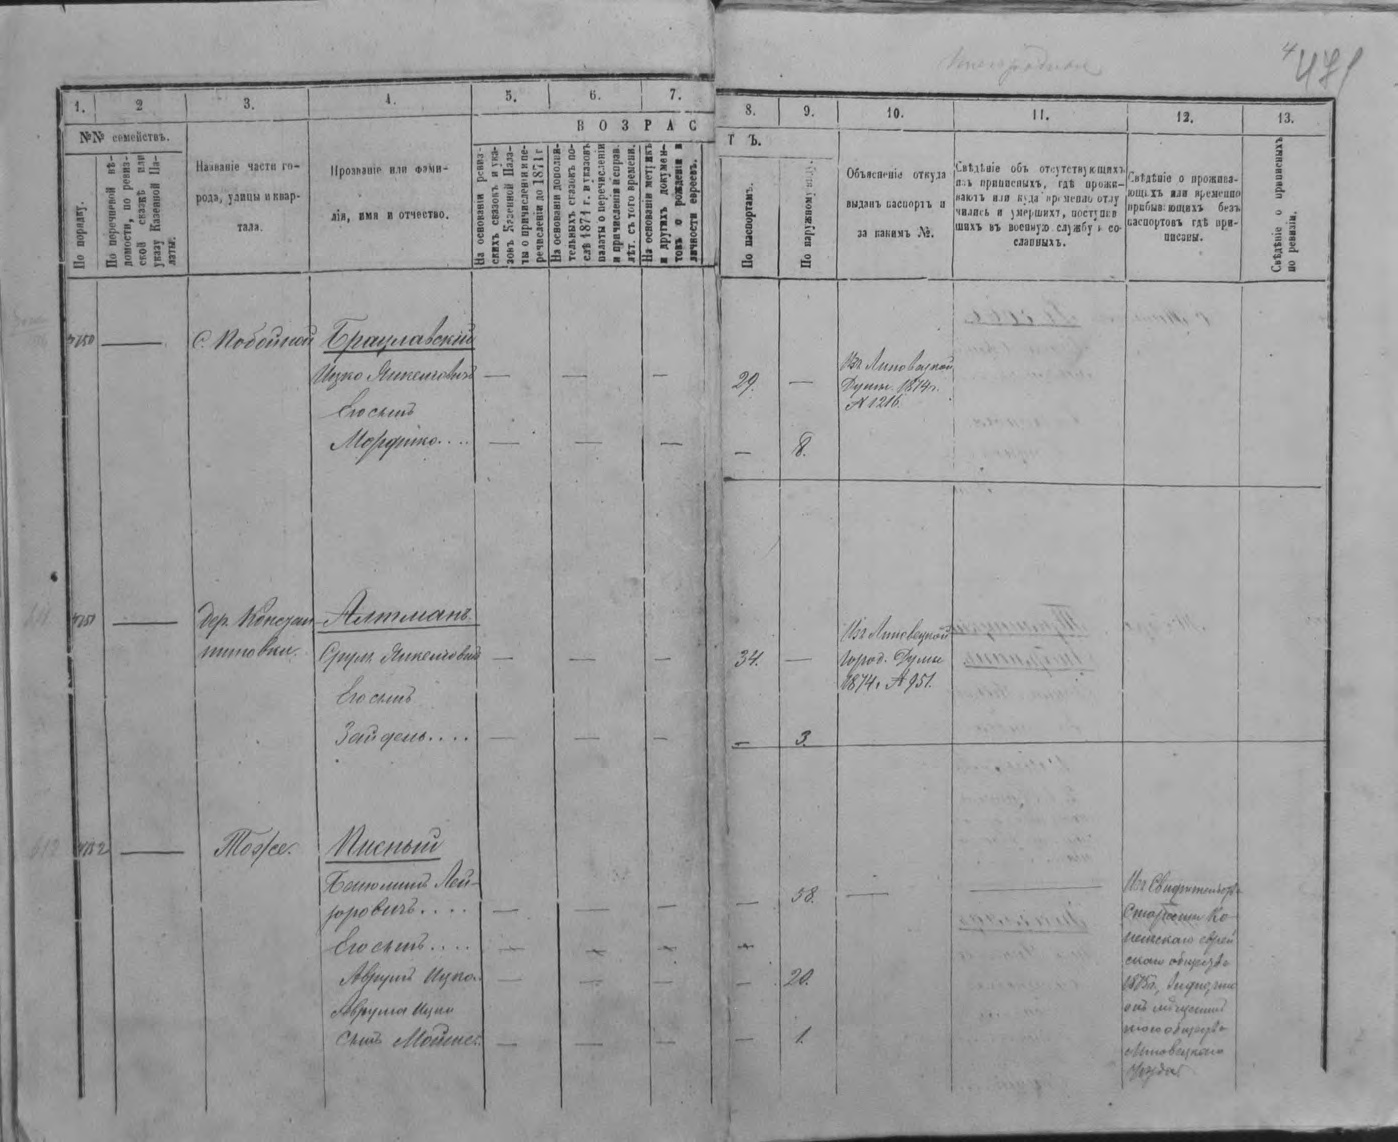 4
471
1. 2 3. 4. 5. 6. 7. 8. 9. 10. 11. 12. 13.
№№ семействъ.
По порядку.
По перечневой вѣ-
домости, по ревиз-
ской сказкѣ или
указу Казенной Па-
латы.
Названіе части го-
рода, улицы и квар-
тала.
Прозваніе или фами-
лія, имя и отчество.
ВОЗРАС
ТЪ.
На основаніи ревиз-
скихъ сказокъ и ука-
зовъ Казенной Пала-
ты о причисленіи и пе-
речисленіи до 1871 г
На основаніи дополни-
тельныхъ сказокъ по-
слѣ 1874 г. и указовъ
палаты о перечисленіи
и причисленіи и исправ.
лѣт. съ того времени.
На основаніи метрикъ
и другихъ докумен-
товъ о рожденіи и
личности евреевъ.
По паспортамъ.
По наружному виду.
Объясненіе откуда
выданъ паспортъ и
за какимъ №.
Свѣдѣніе объ отсутствующихъ
изъ приписныхъ, гдѣ прожи-
ваютъ или куда временно отлу
чились и умершихъ, поступив
шихъ въ военную службу и со-
сланныхъ.
Свѣдѣніе о прожива-
ющихъ или временно
прибывающихъ безъ
паспортовъ гдѣ при-
писаны.
Свѣдѣніе о приписныхъ
по ревизіи.
С. Побойной
Брацлавскій
Ицко Янкелговичъ
29.
Изъ Липовецкой
Думы. 1874 г.
№ 1216
Его сынъ
Мордко....
8.
дер. Констан
тиновки.
Алтманъ.
Срул Янкелговичъ
34.
Изъ Липовецкой
Город. Думы
1874 г. № 951.
Его сынъ
Зайдель....
3.
Тоже.
Кисный
Бенюминъ Лей-
зоровичъ....
58.
Его сынъ....
Аврумъ Ицко.
20.
Аврума Ицко
сынъ Мошко.
1.
Изъ Свидѣтельства
Старосты
скаго общества
1875 г.
Липовецкаго
уѣзда